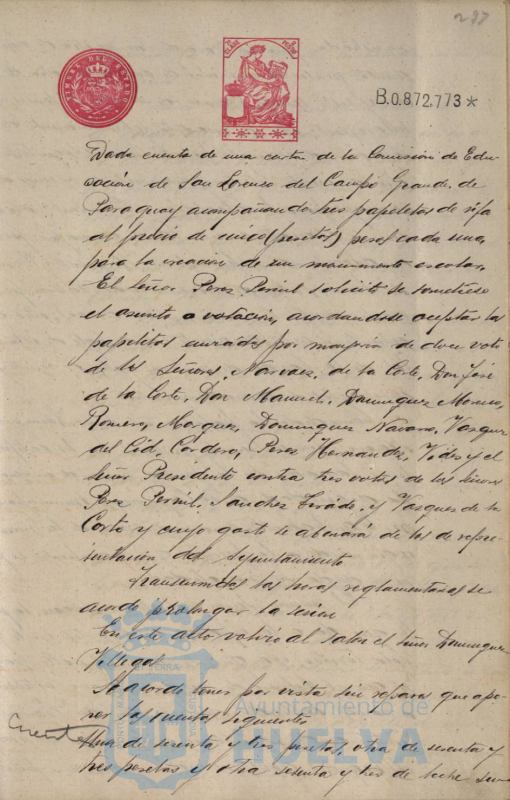 287
TIMBRE DEL ESTADO
B.0.872,773*
Dada cuenta de una carta de la Comisión de Edu-
cación de San Lorenzo del Campo Grande, de
Paraguay acompañando tres papeletas de rifa
al precio de cinco (pesetas) pesos cada una,
para la creación de un monumento escolar,
El Señor Perez Pernil solicitó se sometiese
el asunto a votación, acordandose aceptar las
papeletas enviadas por mayoria de doce votos
de los Señores, Narvaez, de la Corte, Don José
de la Corte, Don Manuel, Dominguez Moreno,
Romero, Marquez, Dominguez Navarro, Vazquez
del Cid, Cordero, Perez Hernandez, Vides y el
Señor Presidente contra tres votos de los Señores
Perez Pernil, Sanchez y Vazquez de la
Corte y cuyo gasto se abonará de los de repre-
sentación del Ayuntamiento
Transcurridas las horas reglamentarias se
acordó prolongar la sesion
En este acto volvió al Salon el Señor Dominguez
Villegas
Se acordó tener por vista sin reparo que apo-
ner las cuentas siguientes
Cuentas
Una de sesenta y tres pesetas, otra de sesenta y
tres pesetas y otra sesenta y tres de leche
Ayuntamiento de
HUELVA